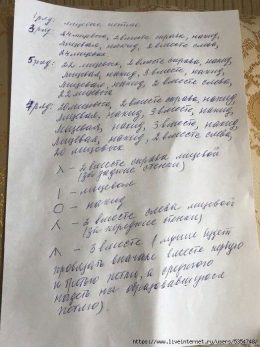 1 ряд: лицевые петли
3 ряд:
24 лицевых, 2 вместе справа, накид,
лицевая, накид, 2 вместе слева,
24 лицевых
5 ряд: 22 лицевых, 2 вместе справа, накид,
лицевая, накид, 3 вместе, накид,
лицевая, накид, 2 вместе слева,
22 лицевых
7 ряд: 20 лицевых, 2 вместе справа, накид,
лицевая, накид, 3 вместе, накид,
лицевая, накид, 3 вместе, накид,
лицевая, накид, 2 вместе слева,
20 лицевых
- 2 вместе справа лицевой
(за задние стенки)
| - лицевая
О - накид
- 2 вместе слева лицевой
(за передние стенки)
- 3 вместе (лучше будет
провязать вначале вместе первую
и третью петли, а среднюю
надеть на образовавшуюся
петлю).
https://www.liveinternet.ru/users/5354748/